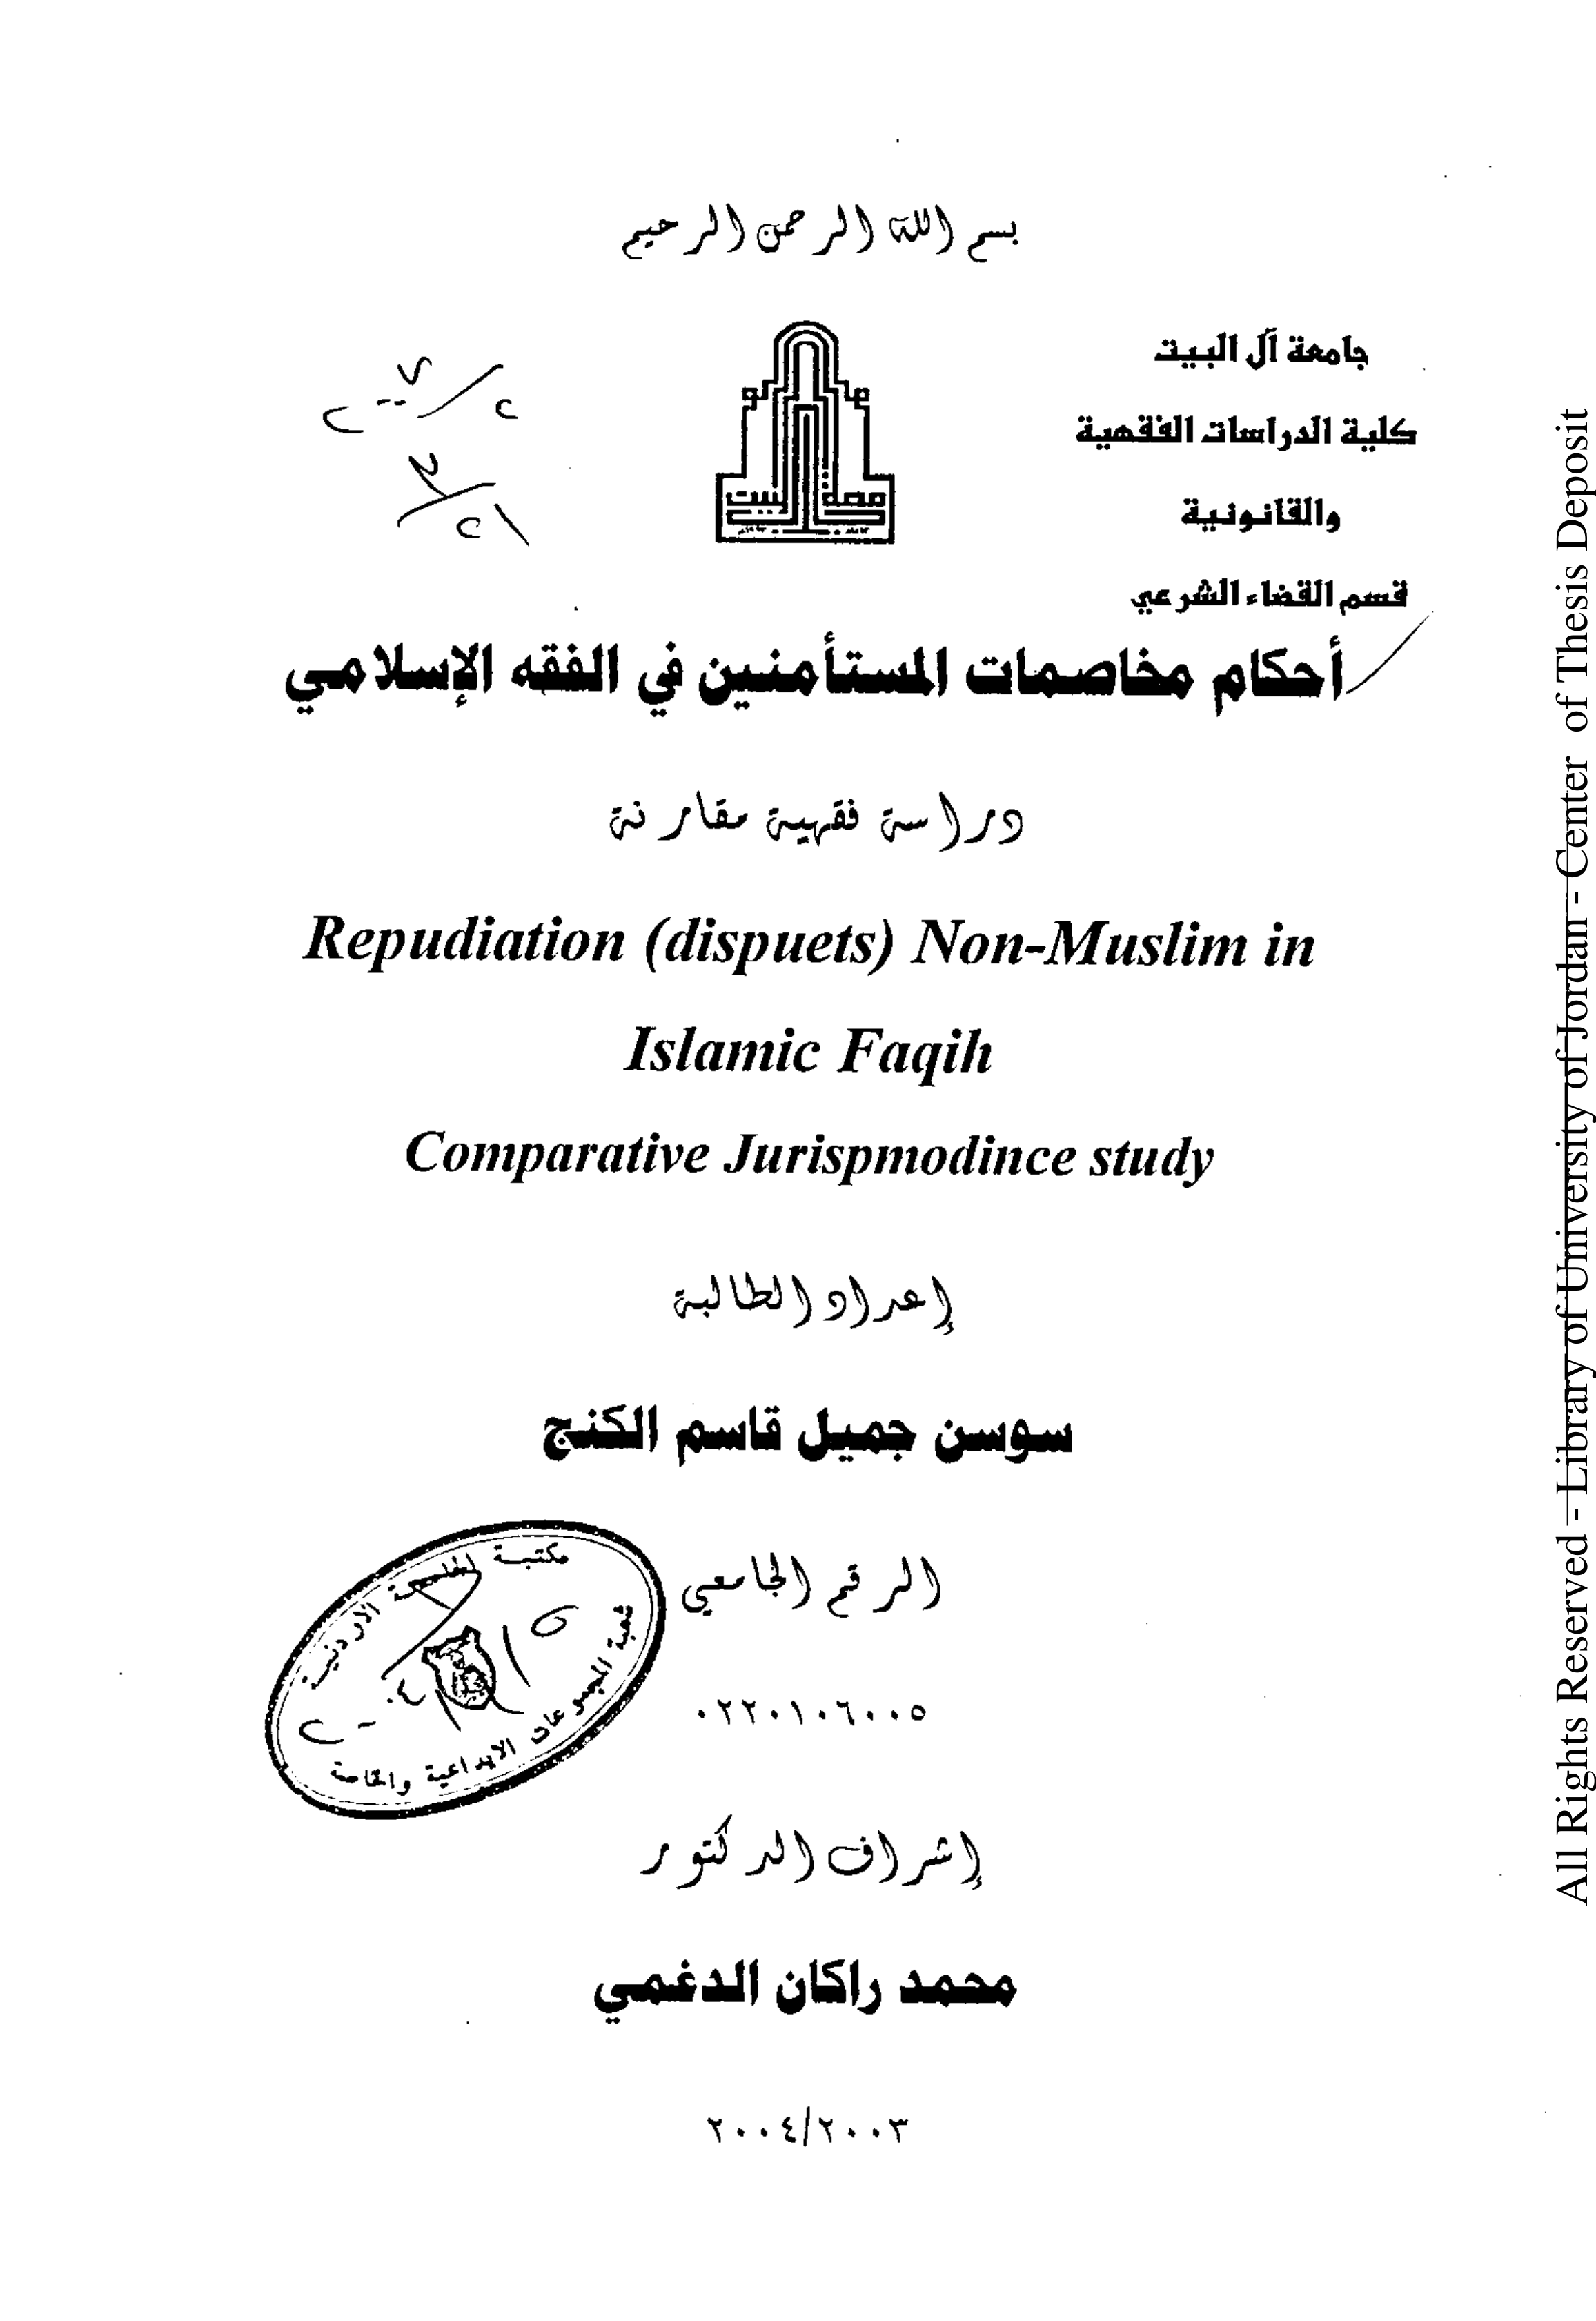 بسم الله الرحمن الرحيم
جامعة آل البيت
كلية الدراسات الفقهية
والقانونية
قسم القضاء الشرعي
أحكام مخاصمات المستأمنين في الفقه الإسلامي
دراسة فقهية مقارنة
Repudiation (dispuets) Non-Muslim in
Islamic Faqih
Comparative Jurispmodince study
إعداد الطالبة
سوسن جميل قاسم الكنج
الرقم الجامعي
٠٢٢٠١٠٦٠٠٥
مكتبة الجامعة الاردنية
شعبة المجموعات الايداعية والخاصة
إشراف الدكتور
محمد راكان الدغمي
٢٠٠٤/٢٠٠٣
All Rights Reserved - Library of University of Jordan - Center of Thesis Deposit